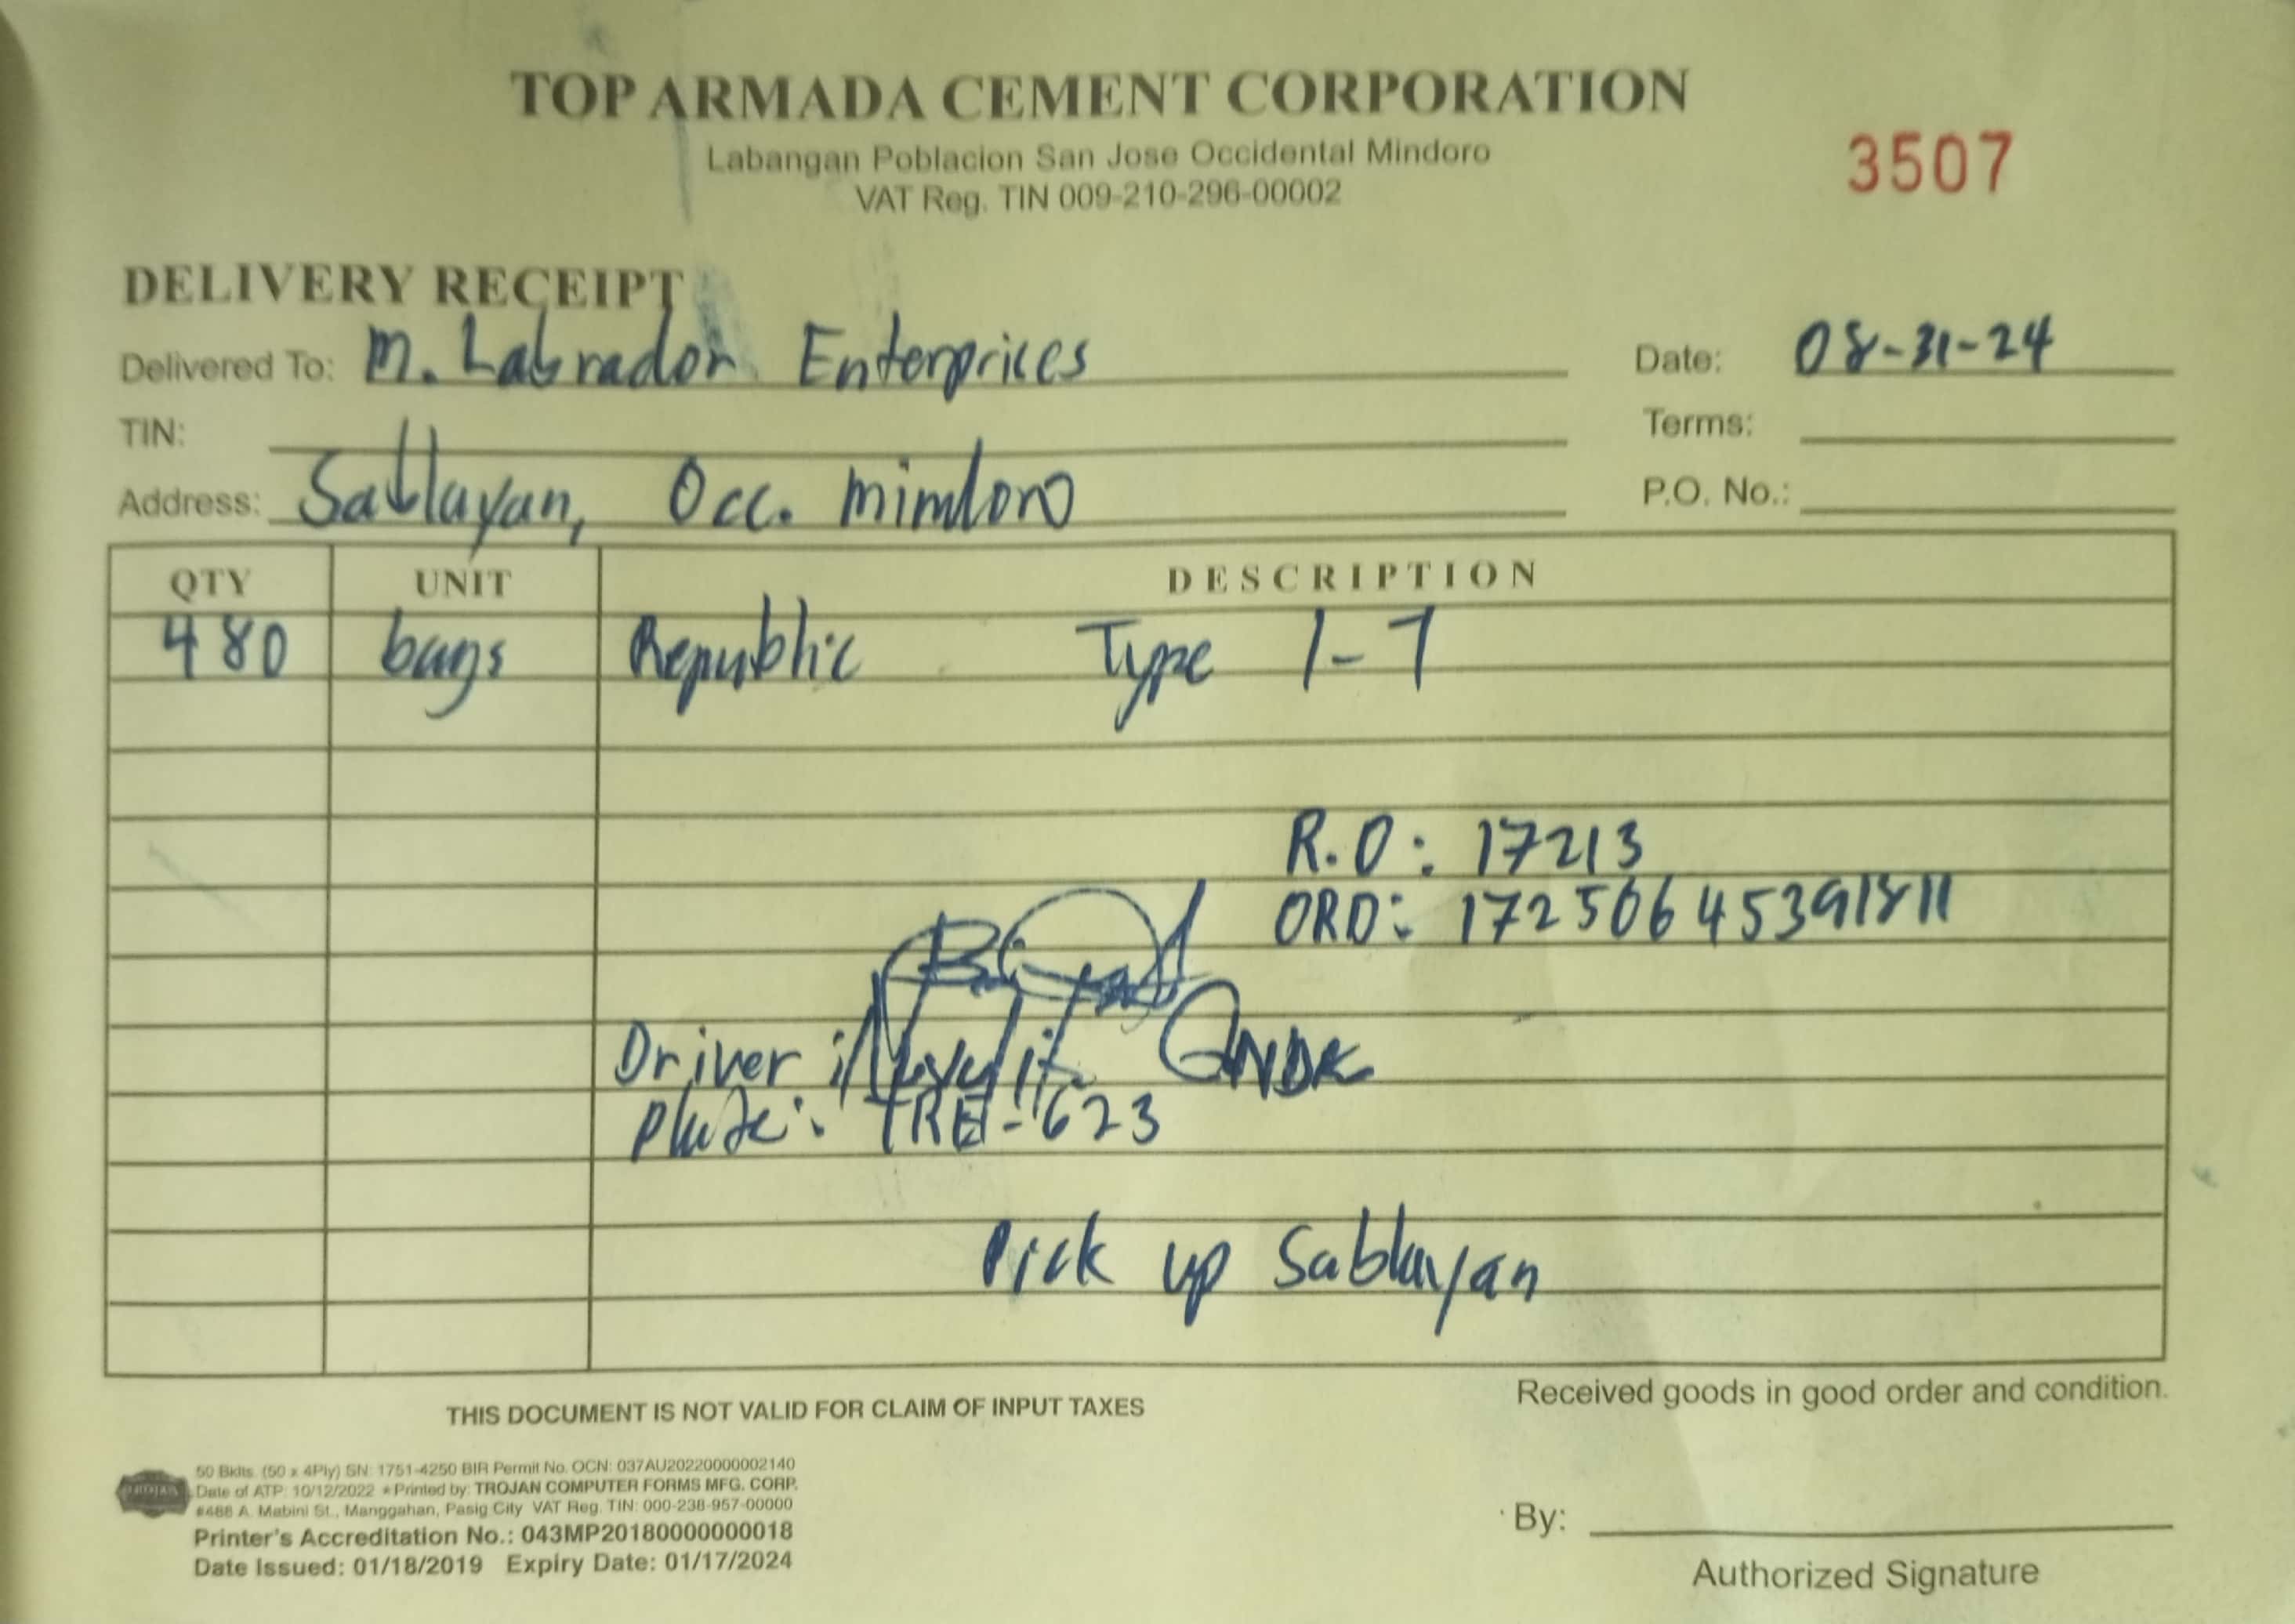 TOP ARMADA CEMENT CORPORATION
Labangan Poblacion San Jose Occidental Mindoro
VAT Reg. TIN 009-210-296-00002
3507
DELIVERY RECEIPT
Delivered To: M. Labrador Enterprices
Date: 08-31-24
TIN:
Terms:
Address: Sablayan, Occ. Mimdoro
P.O. No.:
QTY UNIT DESCRIPTION
480 bags Republic Type 1-T
R.O: 17213
ORD: 17250645391811
Driver:
Plate: TRH-623
Pick up Sablayan
THIS DOCUMENT IS NOT VALID FOR CLAIM OF INPUT TAXES
Received goods in good order and condition.
50 Bklts. (50 x 4Ply) SN: 1751-4250 BIR Permit No. OCN: 037AU20220000002140
Date of ATP: 10/12/2022 * Printed by: TROJAN COMPUTER FORMS MFG. CORP.
#488 A. Mabini St., Manggahan, Pasig City VAT Reg. TIN: 000-238-957-00000
Printer's Accreditation No.: 043MP20180000000018
Date Issued: 01/18/2019 Expiry Date: 01/17/2024
By:
Authorized Signature